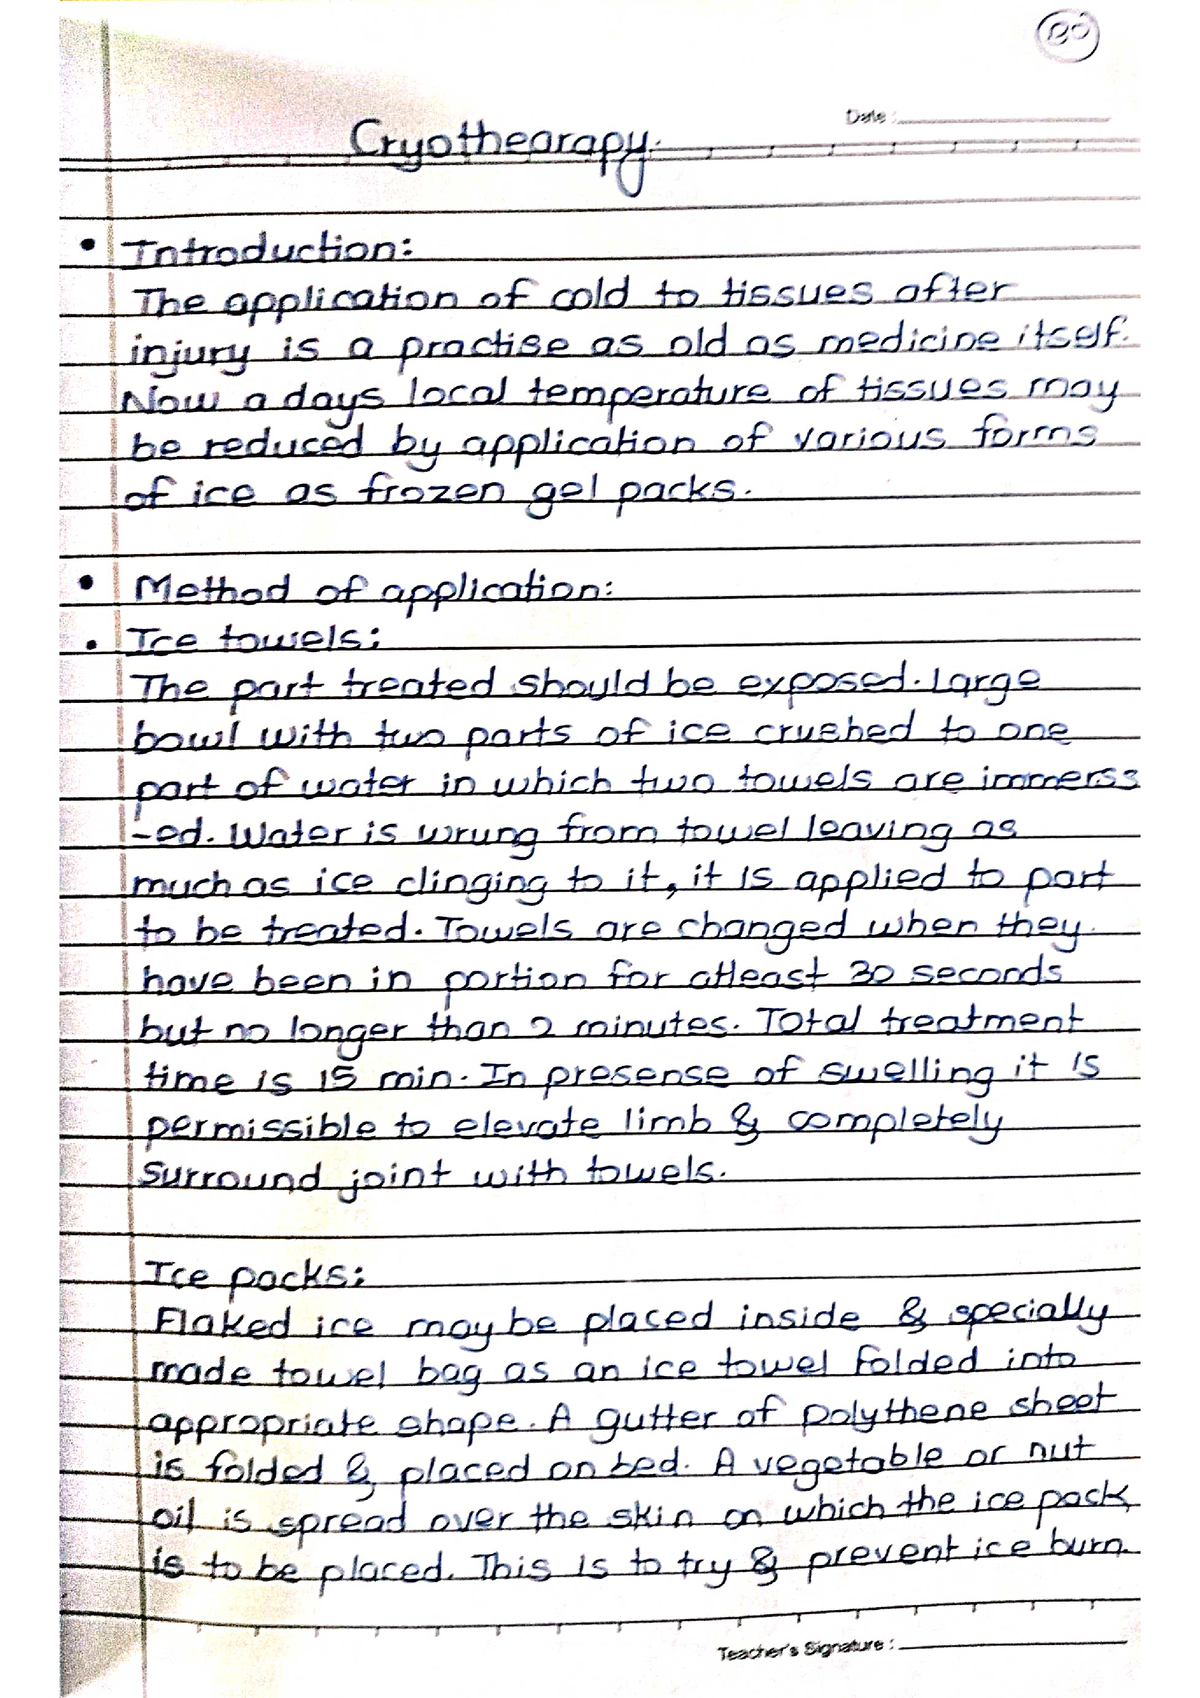 Date :
Cryothearapy.
• Introduction:
The application of cold to tissues after
injury is a practise as old as medicine itself.
Now a days local temperature of tissues may
be reduced by application of various forms
of ice as frozen gel packs.
• Method of application:
• Ice towels:
The part treated should be exposed. Large
bowl with two parts of ice crushed to one
part of water in which two towels are immerss
-ed. Water is wrung from towel leaving as
much as ice clinging to it, it is applied to part
to be treated. Towels are changed when they
have been in portion for atleast 30 seconds
but no longer than 2 minutes. Total treatment
time is 15 min. In presense of swelling it is
permissible to elevate limb & completely
surround joint with towels.
Ice packs:
Flaked ice may be placed inside & specially
made towel bag as an ice towel folded into
appropriate shape. A gutter of polythene sheet
is folded & placed on bed. A vegetable or nut
oil is spread over the skin on which the ice pack
is to be placed. This is to try & prevent ice burn.
Teacher's Signature :